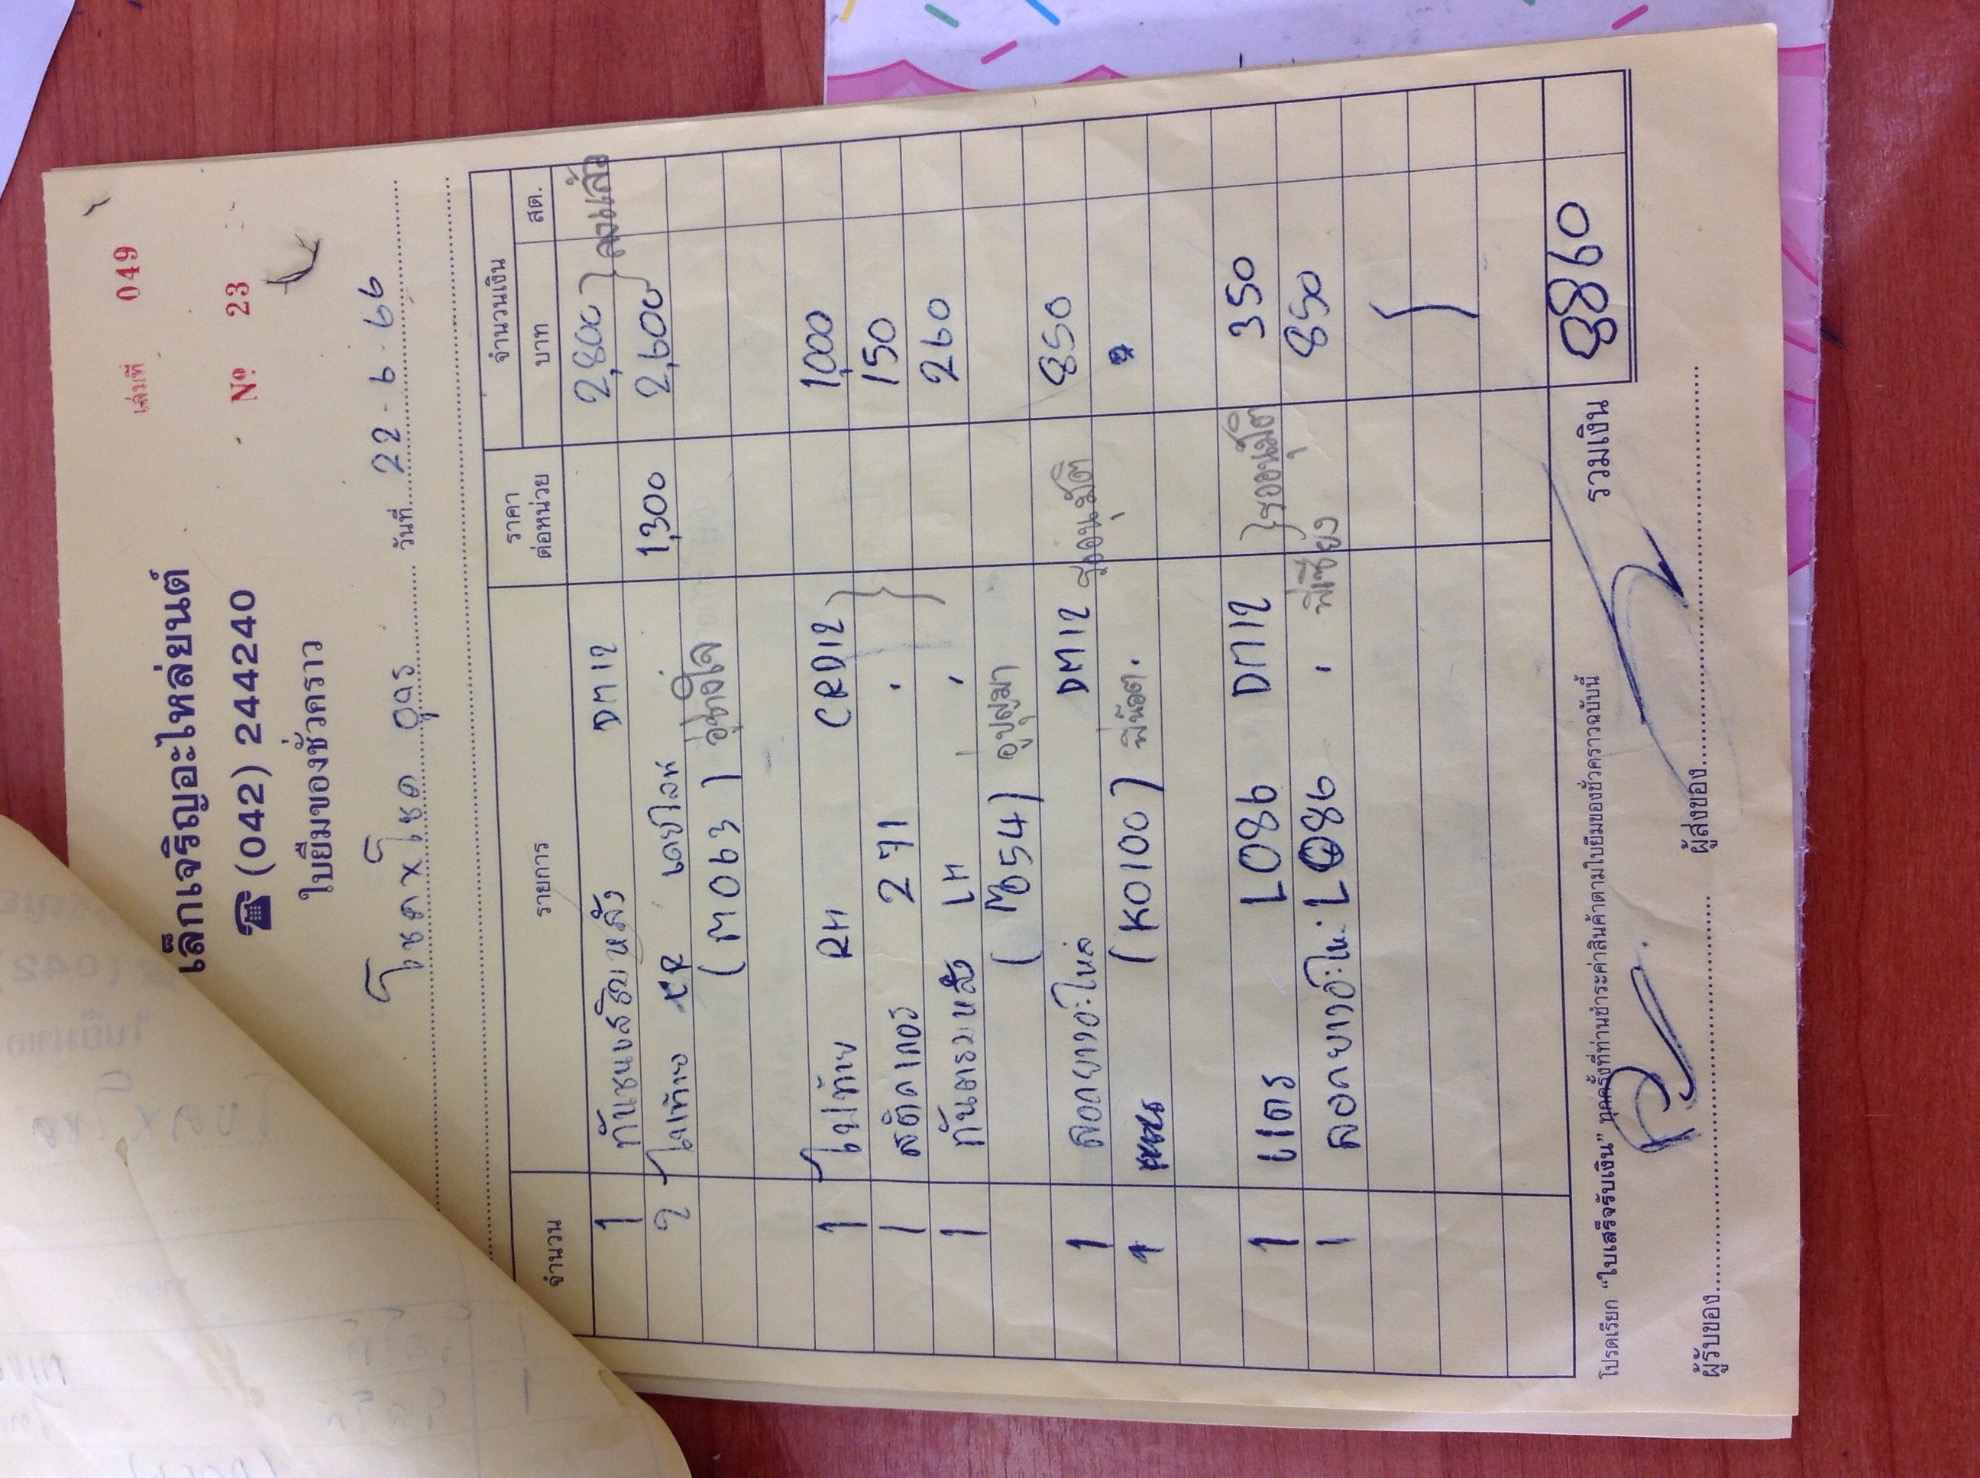 เล่มที่ 049
เล็กเจริญอะไหล่ยนต์
☎ (042) 244240
Nº 23
ใบยืมของชั่วคราว
โชคxโชค อุดร วันที่ 22-6-66
จำนวน รายการ ราคาต่อหน่วย จำนวนเงิน
บาท สต.
1 กันชนเสริมหลัง DM12 2,800 } ลงแล้ว
2 ไฟท้าย เดย์ไลท์ 1,300 2,600
(M063)
1 ไฟท้าย RH CRD12 1,000
1 สติคเกอร์ 271 150
1 กันตรมหลัง LH 260
(M054)
1 ลอกยางอะไหล่ DM12 รออนุมัติ 850
(K0100) พี่น๊อต
1 แตร L086 DM12 } รออนุมัติ 350
1 ลอกยางอะไห: L086 850
โปรดเรียก “ใบเสร็จรับเงิน” ทุกครั้งที่ท่านชำระค่าสินค้าตามใบยืมของชั่วคราวฉบับนี้ รวมเงิน 8860
ผู้รับของ ผู้ส่งของ